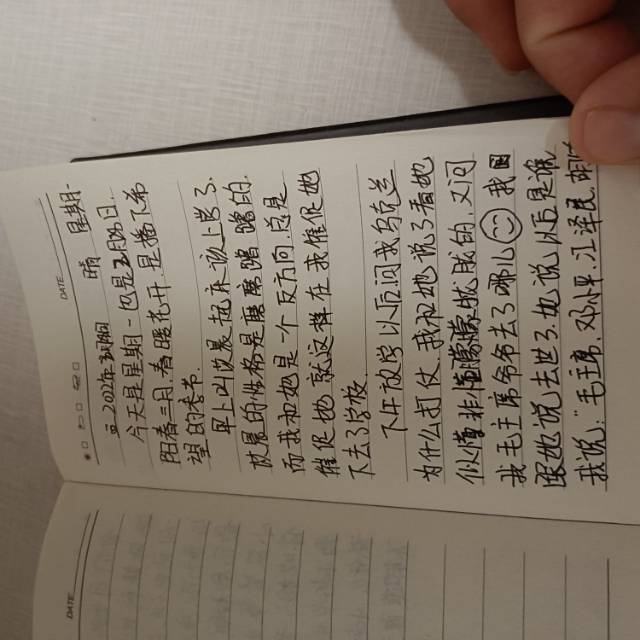 DATE
2022年3月 晴 星期一
今天是星期一也是3月28日,
阳春三月,春暖花开,是播下希
望的季节.
早上叫汶晨起床该上学了,
汶晨的性格是磨磨蹭蹭的,
而我和她是一个反方向,总是
催促她,就这样在我催促她
下去了学校.
下午放学以后问我乌克兰
为什么打仗,我和她说了看她
似懂非懂朦朦胧胧的,又问
我毛主席爷爷去了哪儿 我
跟她说去世了,她说以后是谁
我说:"毛主席,邓小平,江泽民,胡
DATE